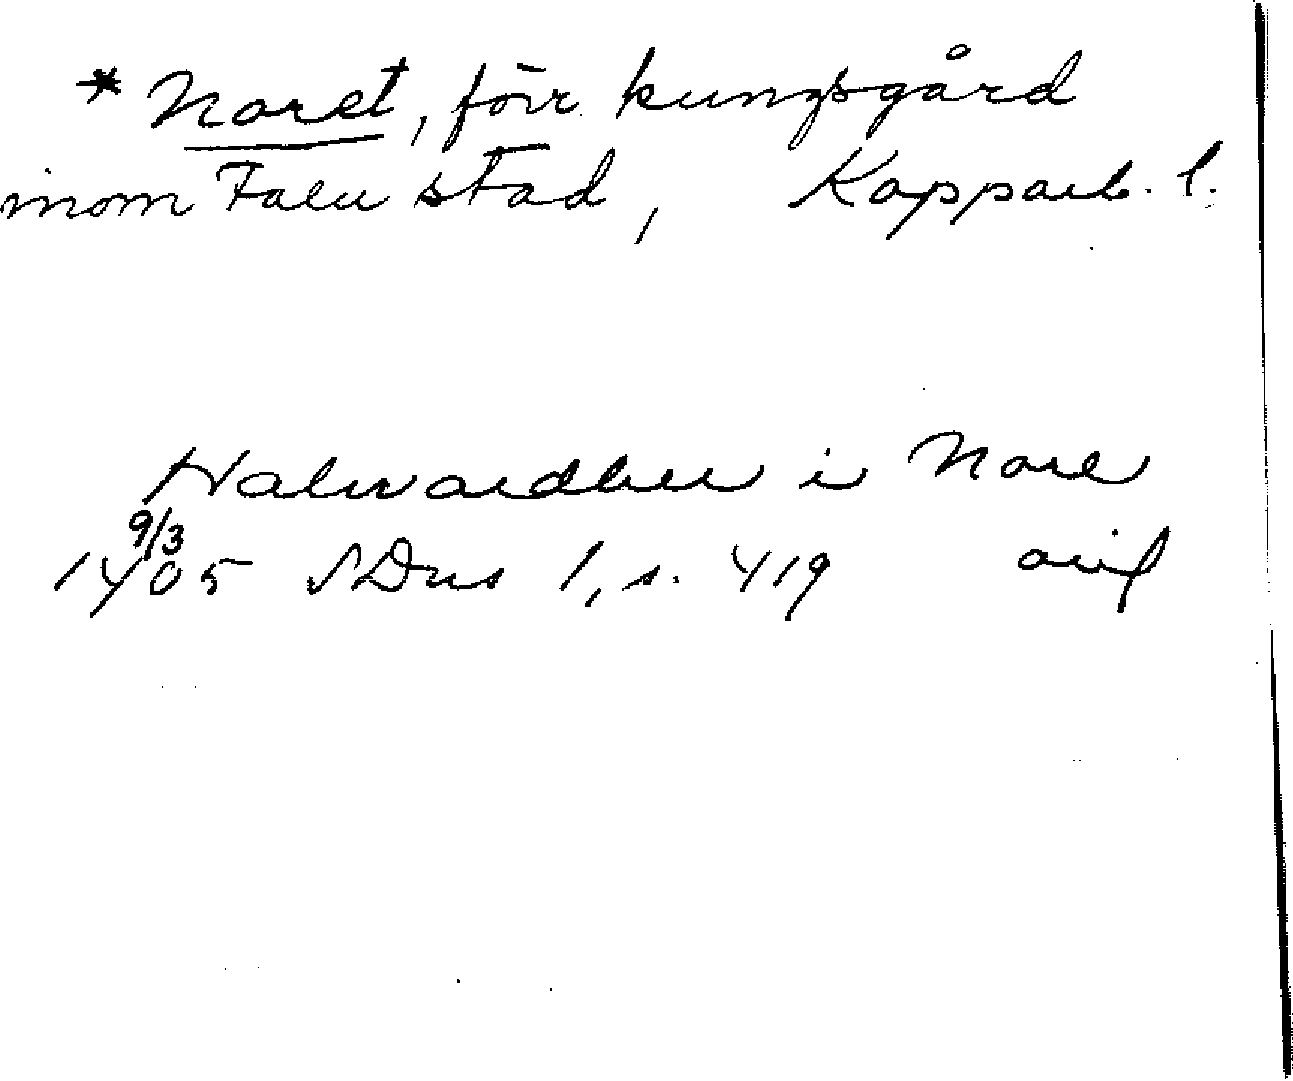 * Noret, förr kungsgård
inom Falu stad, Kopparb. l.
i Nore
9/3
1405 SDns 1, s. 419